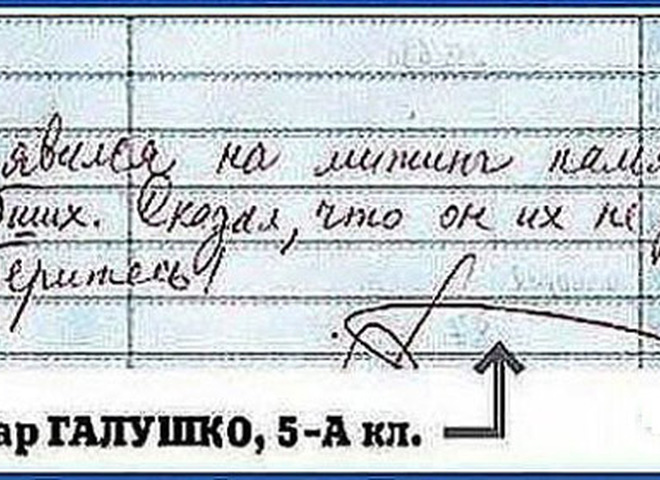 явился на митинг памя
бших. Сказал, что он их не
еритесь!
ар ГАЛУШКО, 5-А кл.